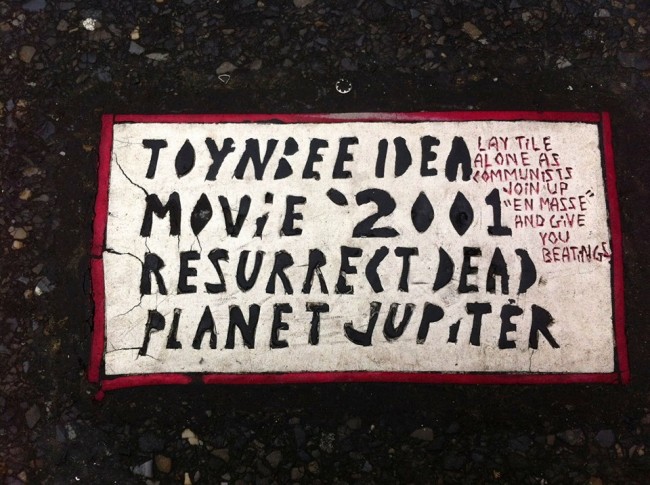 TOYNBEE IDEA
MOViE '2001
RESURRECT DEAD
PLANET JUPiTER
LAY TiLE
ALONE AS
COMMUNiSTS
JOiN UP
"EN MASSE"
AND GiVE
YOU
BEATiNGS